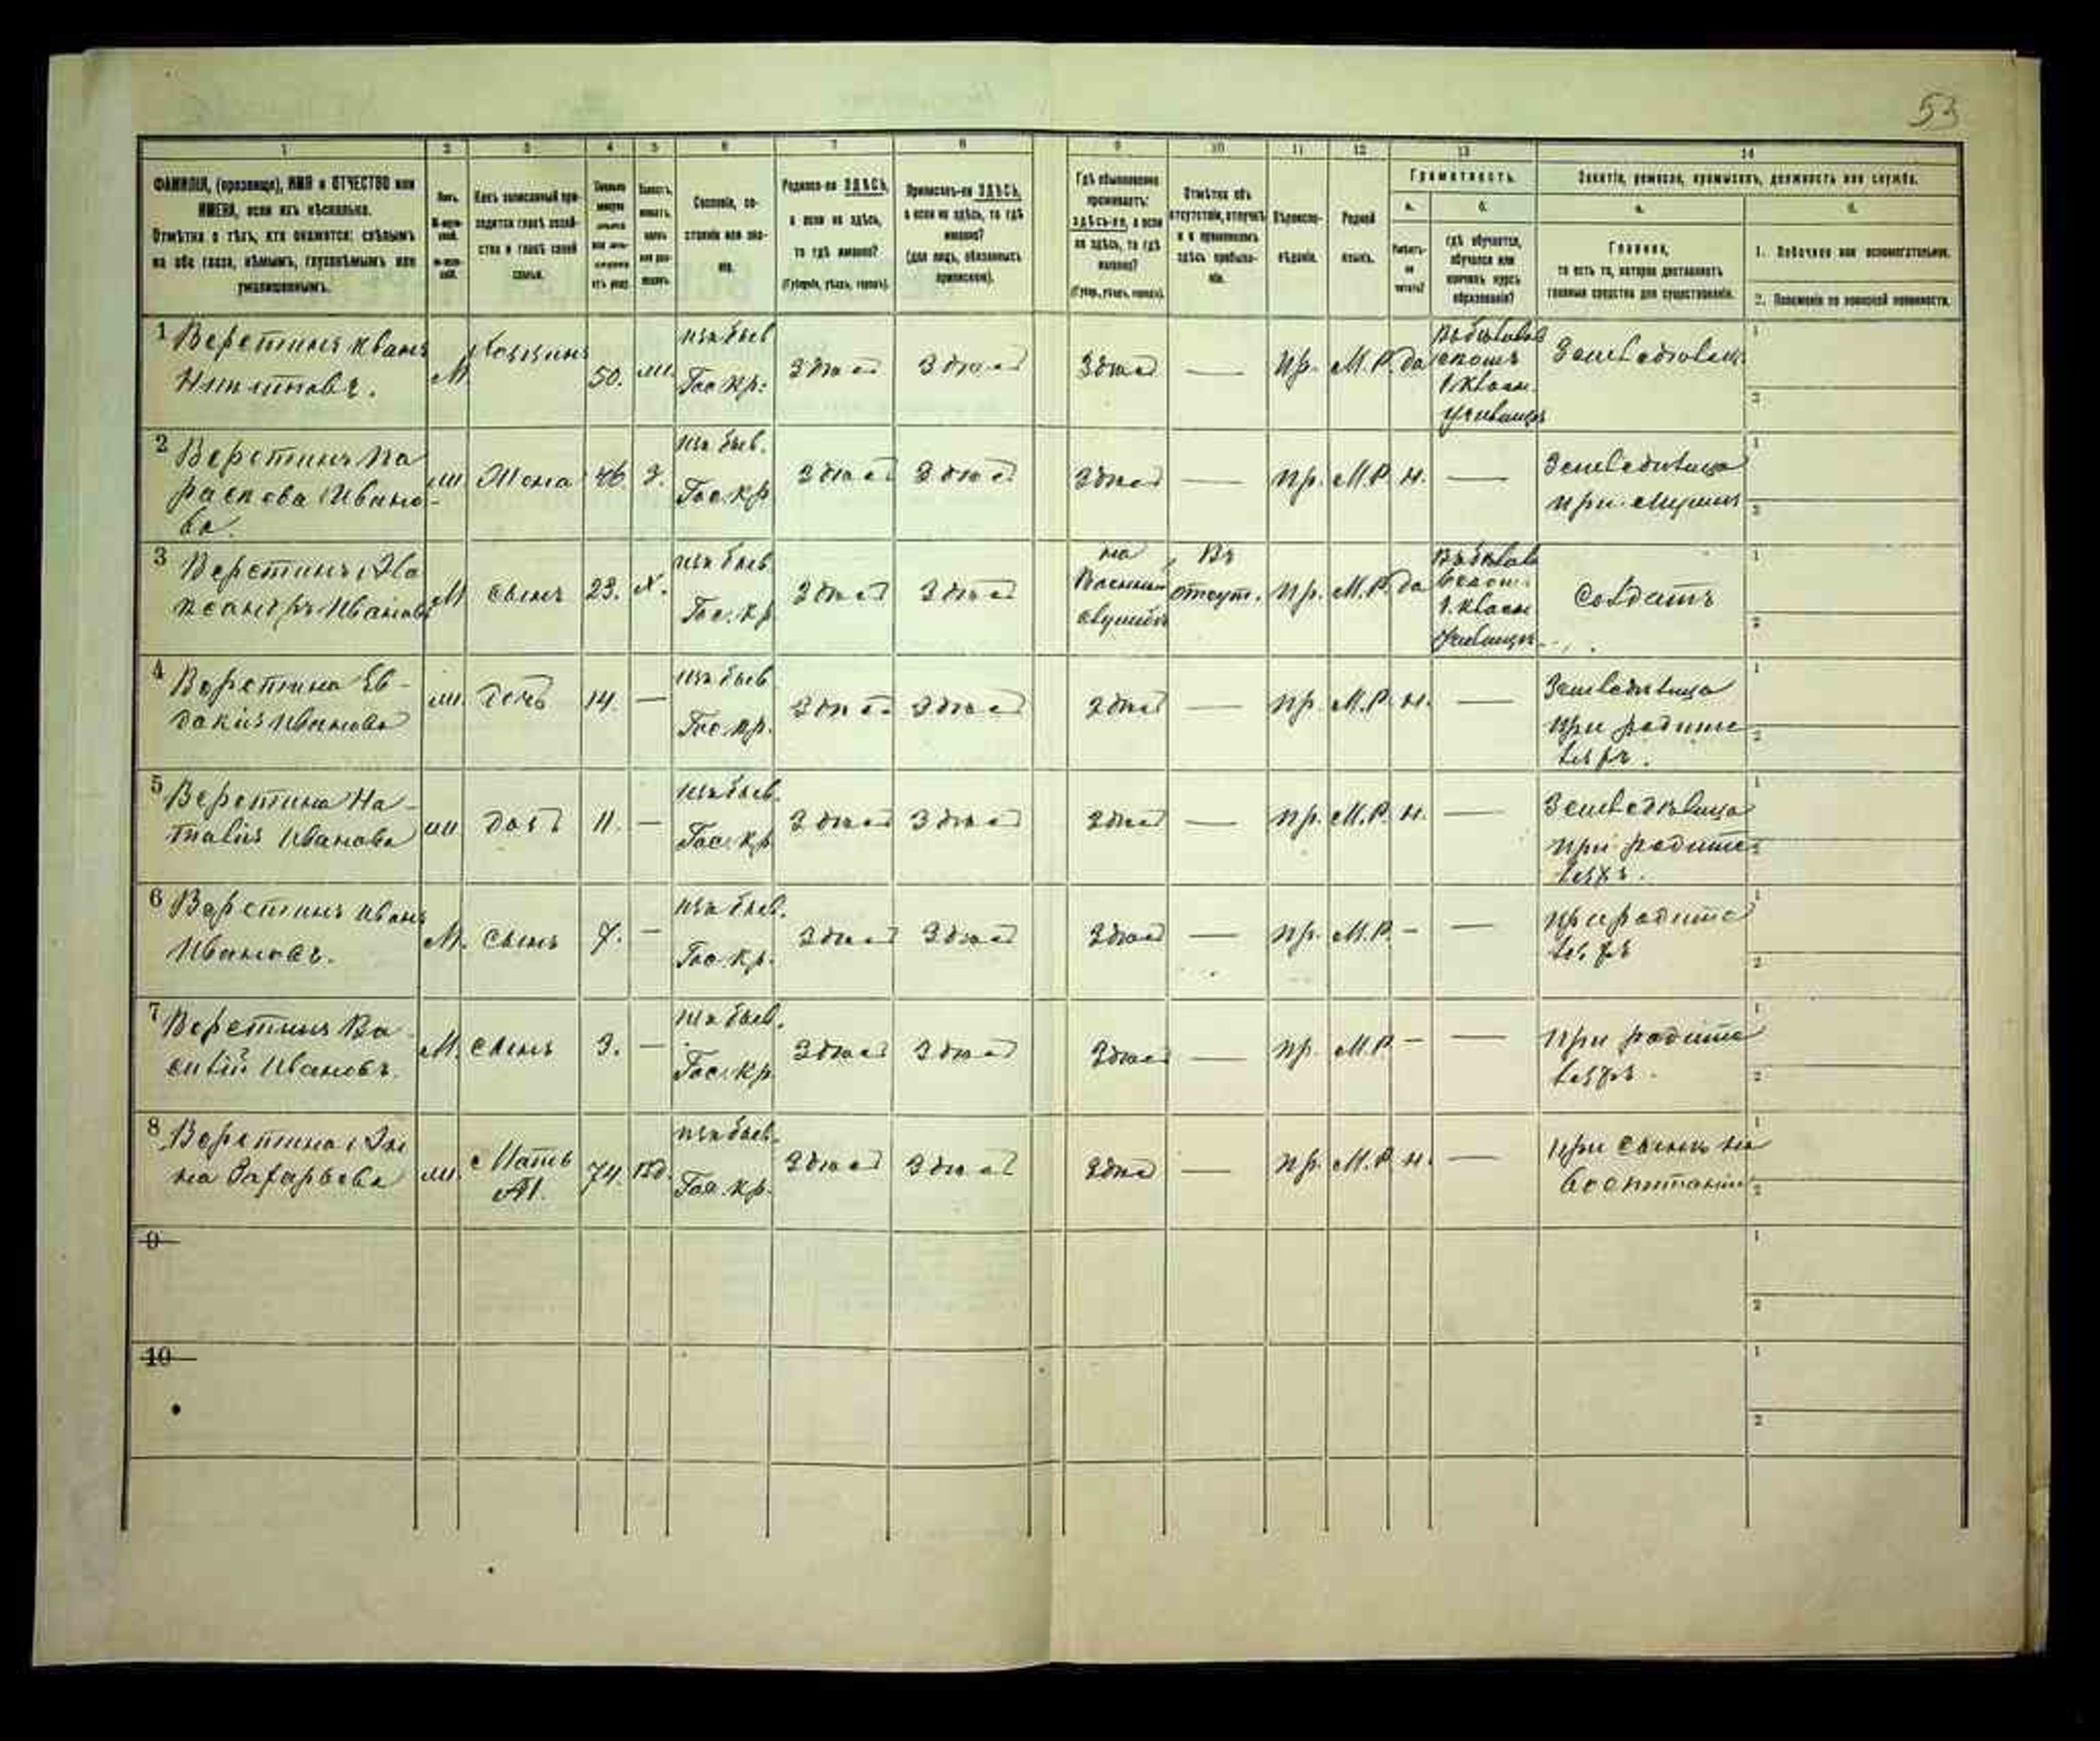 53
1 2 3 4 5 6 7 8 9 10 11 12 13 14
ФАМИЛІЯ, (прозвище), ИМЯ и ОТЧЕСТВО или
ИМЕНА, если ихъ нѣсколько.
Отмѣтка о тѣхъ, кто окажется: слѣпымъ
на оба глаза, нѣмымъ, глухонѣмымъ или
умалишеннымъ.
Полъ.
Какъ записанный при-
ходится главѣ хозяй-
ства и главѣ своей
семьи.
Сословіе, со-
стояніе или зва-
ніе.
Родился-ли ЗДѢСЬ,
а если не здѣсь,
то гдѣ именно?
(Губернія, уѣздъ, городъ).
Приписанъ-ли ЗДѢСЬ,
а если не здѣсь, то гдѣ
именно?
(для лицъ, обязанныхъ
припискою).
Гдѣ обыкновенно
проживаетъ:
здѣсь-ли, а если
не здѣсь, то гдѣ
именно?
(Губер., уѣздъ, городъ).
Отмѣтка объ
отсутствіи, отлучкѣ
и о временномъ
здѣсь пребыва-
ніи.
Вѣроиспо-
вѣданіе.
Родной
языкъ.
Грамотность.
а.
Умѣетъ-
ли
читать?
б.
гдѣ обучается,
обучался или
кончилъ курсъ
образованія?
Занятіе, ремесло, промыселъ, должность или служба.
а.
Главное,
то есть то, которое доставляетъ
главныя средства для существованія.
б.
1. Побочное или вспомогательное.
2. Положеніе по воинской повинности.
1 Веретинъ Иванъ
Никитовъ.
М Хозяинъ 50.
изъ быв.
Гос. кр.
Здѣсь Здѣсь Здѣсь — Пр. М.Р. да
1. класн.
училищѣ
2 Веретина Па
раскова Ивано-
ва.
ж Жена 46. З.
из быв.
Гос. кр
Здѣсь Здѣсь Здѣсь — Пр. М.Р. н. —
при мужѣ
3 Веретинъ Але
ксандръ Ивановъ
М сынъ 23. Х.
изъ быв
Гос. кр
Здѣсь Здѣсь
на
Военной
службѣ
Въ
отсут.
Пр. М.Р. да
1. класн
училищѣ
Солдатъ
4 Веретина Ев-
докія Иванова
ж. дочь 14. —
изъ быв
Гос. кр.
Здѣсь Здѣсь Здѣсь — Пр. М.Р. н. —
при родите
ляхъ.
5 Веретина На-
талія Иванова
ж дочь 11. —
изъ быв.
Гос. кр
Здѣсь Здѣсь Здѣсь — Пр. М.Р. н. —
при родите
ляхъ.
6 Веретинъ Иванъ
Ивановъ.
М. сынъ 7. —
изъ быв.
Гос. кр.
Здѣсь Здѣсь Здѣсь — Пр. М.Р. – —
при родите
ляхъ
7 Веретинъ Ва
силій Ивановъ.
М. сынъ 3. —
изъ быв.
Гос. кр
Здѣсь Здѣсь Здѣсь — Пр. М.Р – —
при родите
ляхъ.
8 Веретина Ан
на Захарьева
ж. Мать 74. вд.
изъ быв.
Гос. кр.
Здѣсь Здѣсь Здѣсь — Пр. М.Р. н. —
при сынѣ на
воспитаніи
9
10